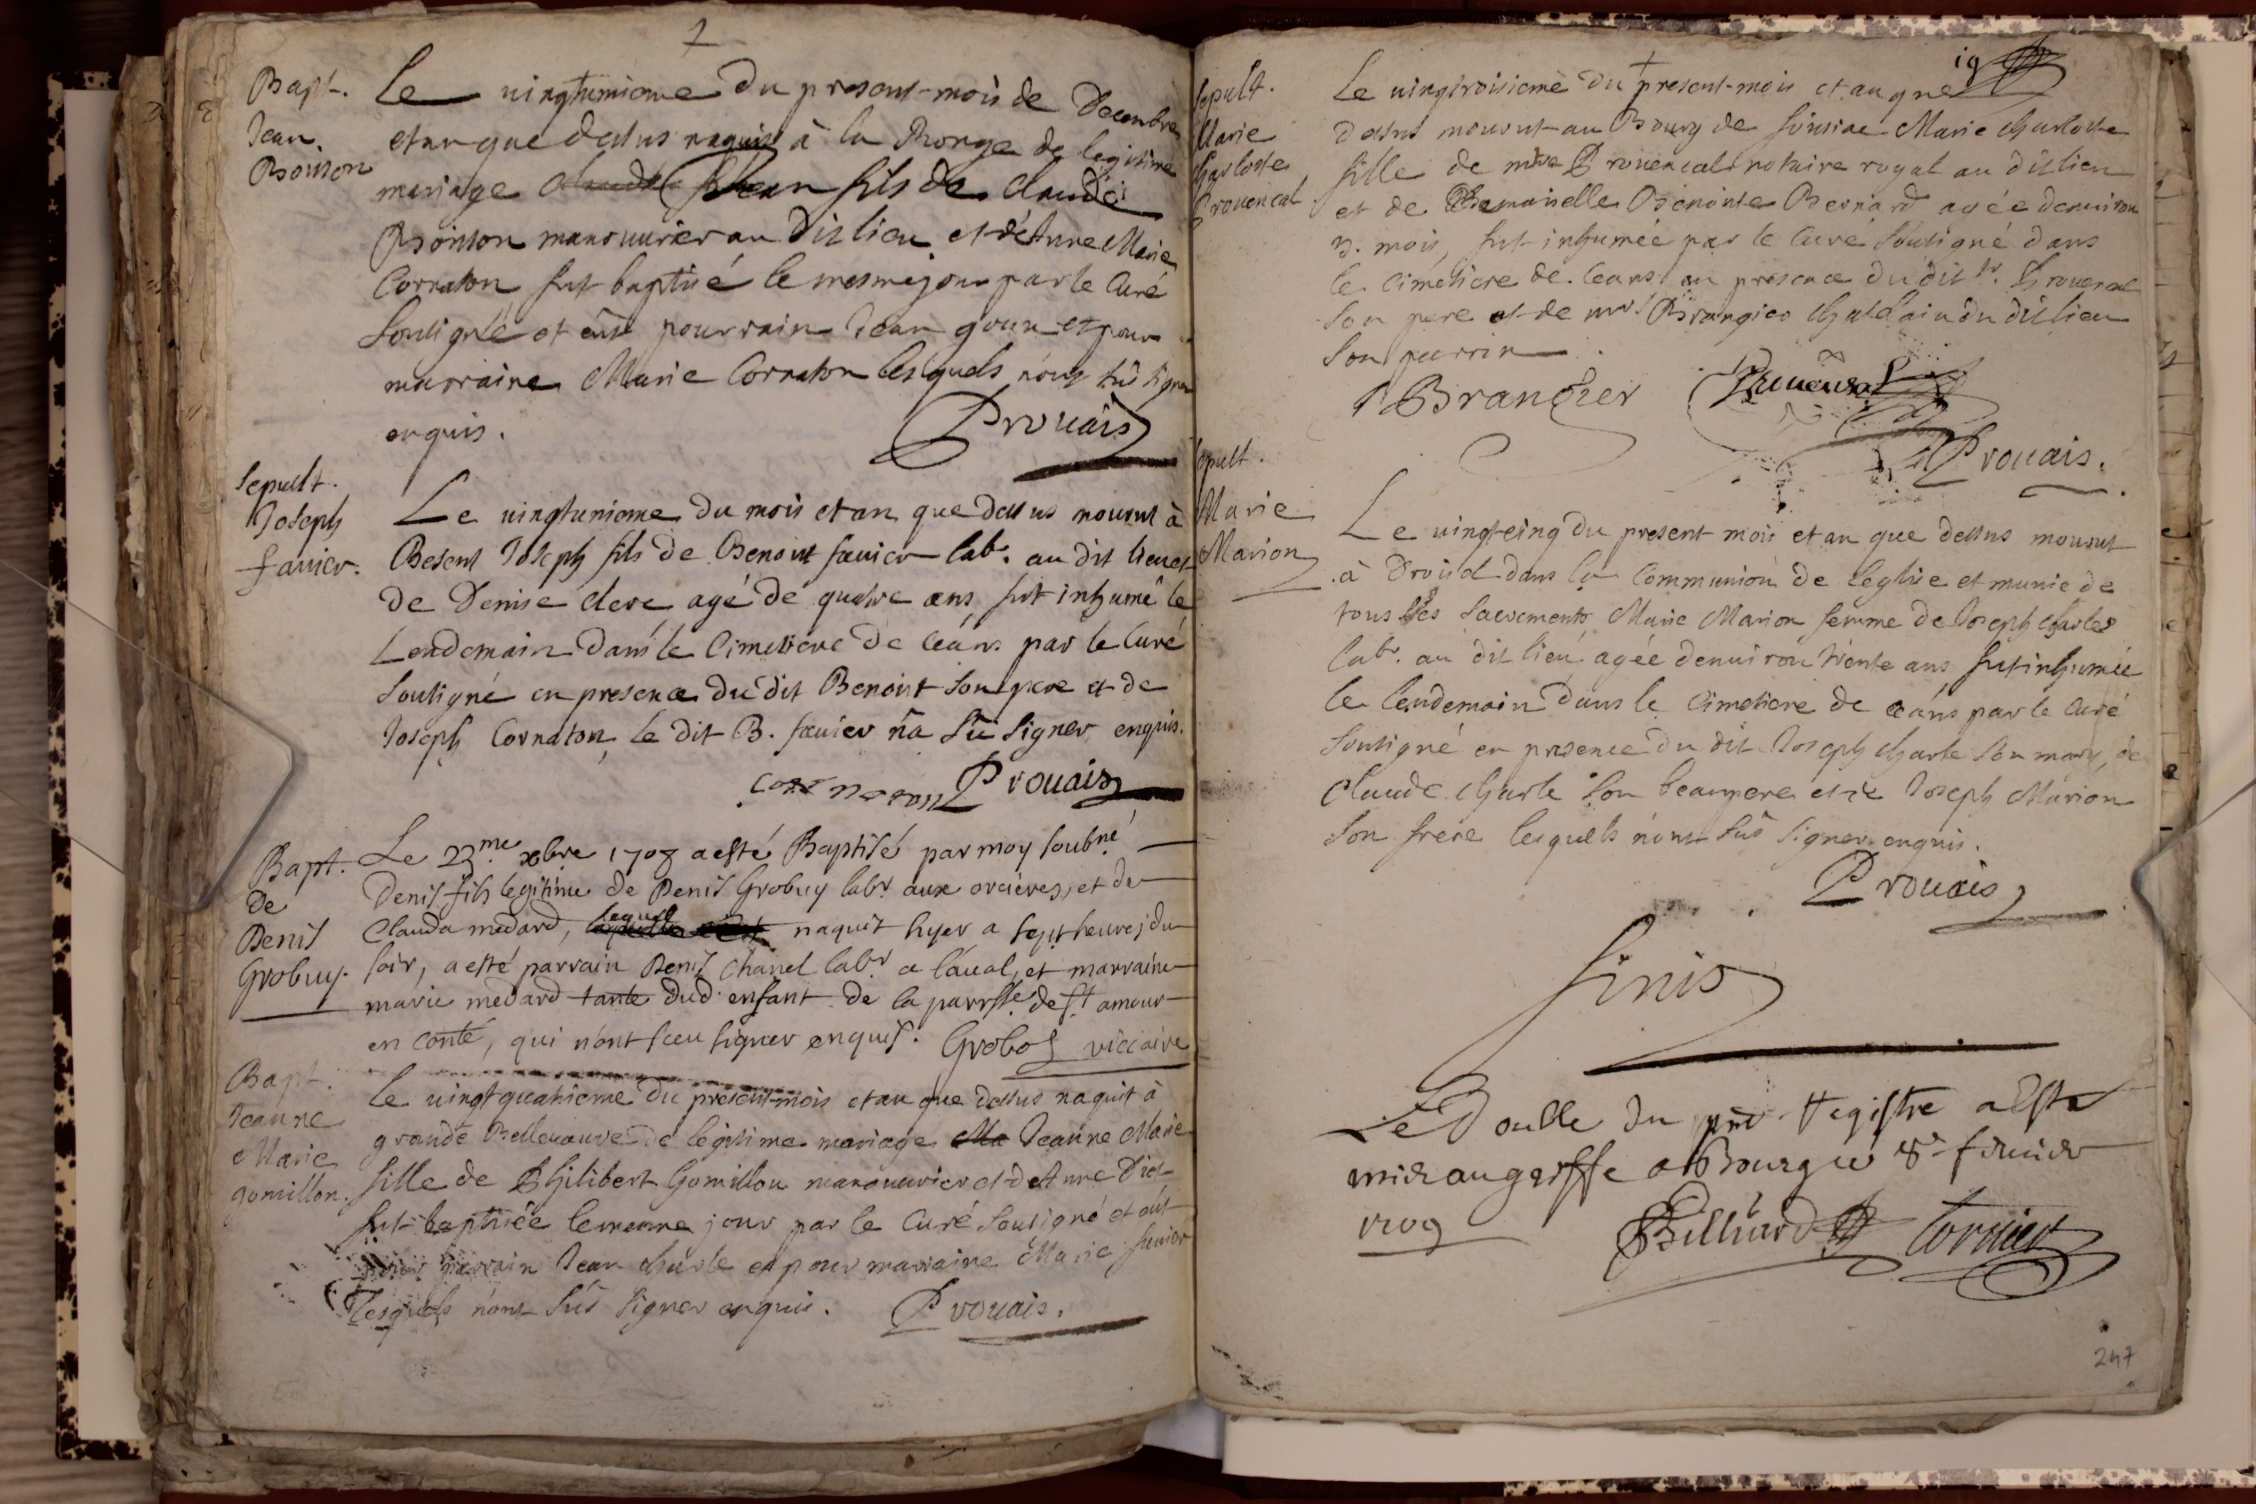 Bapt.
Jean
Boisson
Le vingtunieme du present mois de Decembre
et an que dessus naquit à la Ronge de legitime
mariage Jean fils de Claude
Boisson manouvrier au dit lieu et d'Anne Marie
Cornaton fut baptisé le mesme jour par le Curé
Soussigné et eut pour parrain Jean et pour
marraine Marie Cornaton lesquels n'ont sû signer
enquis.
Prouais
Sepult.
Joseph
favier.
Le vingtunieme du mois et an que dessus mourut à
Besent Joseph fils de Benoist favier lab.r au dit lieu et
de Denise clerc agé de quatre ans fut inhumé le
Lendemain dans le Cimetiere de ceans par le Curé
Soussigné en presence du dit Benoist son pere et de
Joseph Cornaton, le dit B. favier n'a sû signer enquis.
Cornaton Prouais
Bapt.
de
Denis
Grobuy.
Le 23me xbre 1708 a esté Baptisé par moy soubné
Denis fils legitime de Denis Grobuy labr aux orcieres, et de
Clauda medard, lequel naquit hyer a sept heures du
soir, a esté parrain Denis Chanel labr a laval, et marraine
marie medard tante dud. enfant de la parrsse de st amour
en conté, qui n'ont sceu signer enquis. Grobos viccaire
Bapt.
Jeanne
Marie
gomillon.
Le vingtquatrieme du present mois et an que dessus naquit à
grande Bellevauvre de legitime mariage Ma Jeanne Marie
fille de Philibert Gomillon manouvrier et d'Anne
fut baptisée le mesme jour par le Curé Soussigné et eut
pour parrain Jean charle et pour marraine Marie favier
Lesquels n'ont sus signer enquis. Prouais.
19
Sepult.
Marie
Charlotte
Prouencal
Le vingtroisieme du present mois et an que
dessus mourut au Bourg de Marie Charlotte
fille de Prouencal notaire royal au dit lieu
et de Demoiselle Benoiste Bernard agée d'environ
mois, fut inhumée par le Curé soussigné dans
le cimetiere de ceans en presence du dit sr. Prouencal
son pere et de mr Brangier Chatelain du dit lieu
son parrin.
Brangier Prouencal
Prouais.
Sepult.
Marie
Marion
Le vingtcinq du present mois et an que dessus mourut
à Droisel dans la communion de l'eglise et munie de
tous les sacrements Marie Marion femme de Joseph charles
labr. au dit lieu agée d'environ trente ans fut inhumée
le lendemain dans le Cimetiere de ceans par le Curé
soussigné en presence du dit Joseph Charle son mary, de
Claude charle son beaupere et de Joseph Marion
son frere lesquels n'ont sus signer enquis.
Prouais
finis
Le Double du pnt Registre a Esté
mis au greffe a Bourg ce 8e feurier
1709
Billiard Tornier
247